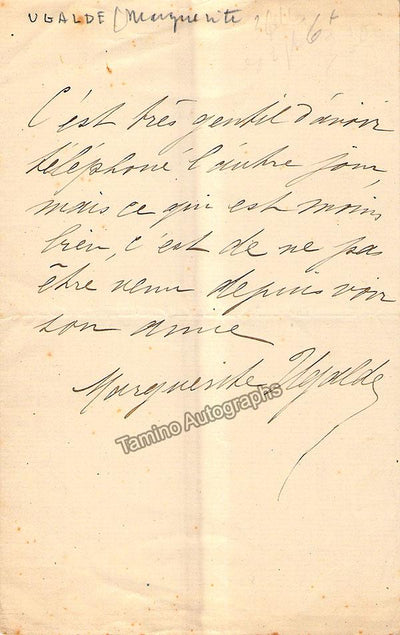 UGALDE (Marguerite
C'est très gentil d'avoir
téléphoné l'autre jour
mais ce qui est moins
bien, c'est de ne pas
être venu depuis voir
son amie
Marguerite Ugalde
Tamino Autographs